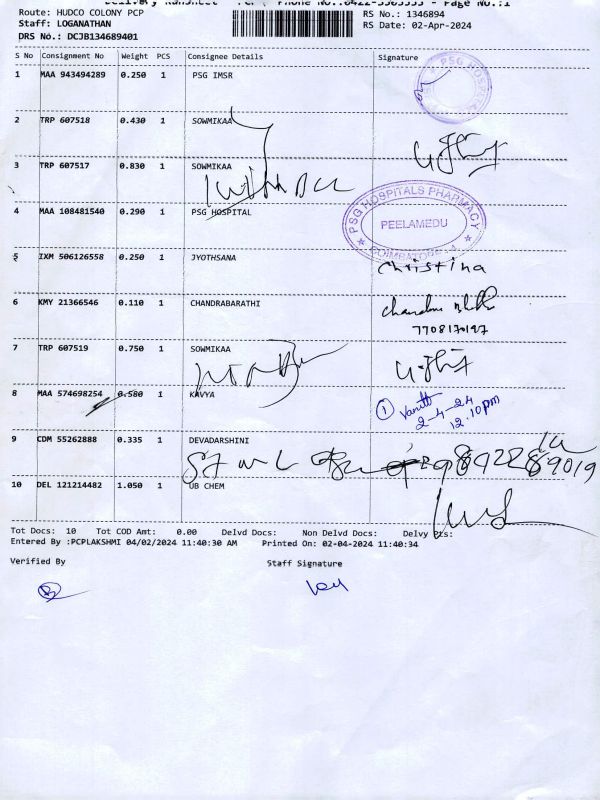 Delivery Runsheet PCP / Phone No.:0422-3503555 - Page No.:1
Route: HUDCO COLONY PCP RS No.: 1346894
Staff: LOGANATHAN RS Date: 02-Apr-2024
DRS No.: DCJB134689401
S No Consignment No Weight PCS Consignee Details Signature
1 MAA 943494289 0.250 1 PSG IMSR
PSG HOSP
2 TRP 607518 0.430 1 SOWMIKAA
3 TRP 607517 0.830 1 SOWMIKAA
4 MAA 108481540 0.290 1 PSG HOSPITAL
PSG HOSPITALS PHARMACY
PEELAMEDU
COIMBATORE-4
5 IXM 506126558 0.250 1 JYOTHSANA
Christina
6 KMY 21366546 0.110 1 CHANDRABARATHI
7 TRP 607519 0.750 1 SOWMIKAA
8 MAA 574698254 0.580 1 KAVYA
1
2-4-24
12.10pm
9 CDM 55262888 0.335 1 DEVADARSHINI
10 DEL 121214482 1.050 1 UB CHEM
Tot Docs: 10 Tot COD Amt: 0.00 Delvd Docs: Non Delvd Docs: Delvy Pts:
Entered By :PCPLAKSHMI 04/02/2024 11:40:30 AM Printed On: 02-04-2024 11:40:34
Verified By Staff Signature